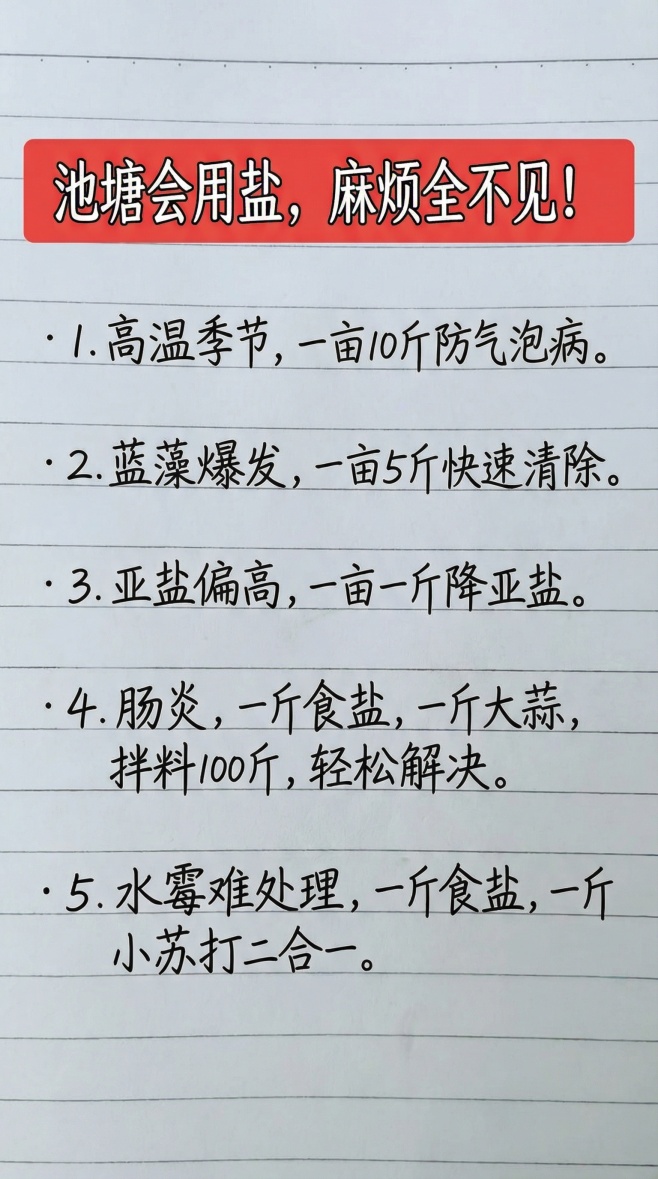 池塘会用盐，麻烦全不见！
·1.高温季节，一亩10斤防气泡病。
·2.蓝藻爆发，一亩5斤快速清除。
·3.亚盐偏高，一亩一斤降亚盐。
·4.肠炎，一斤食盐，一斤大蒜，
拌料100斤，轻松解决。
·5.水霉难处理，一斤食盐，一斤
小苏打二合一。